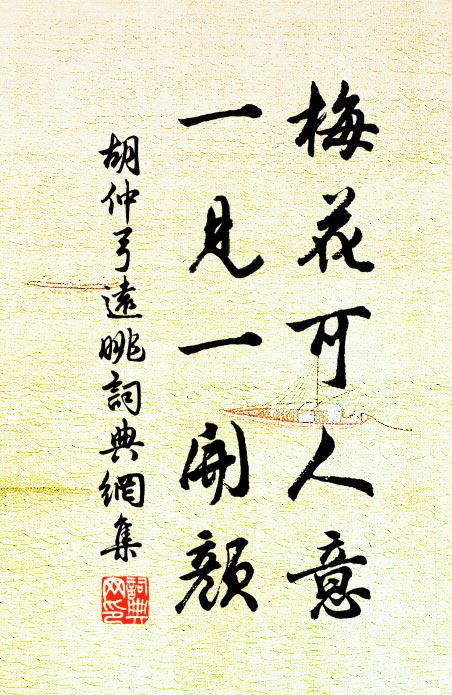 梅花可人意
一見一開顏
胡仲弓遠眺詞典網集
詞典網印